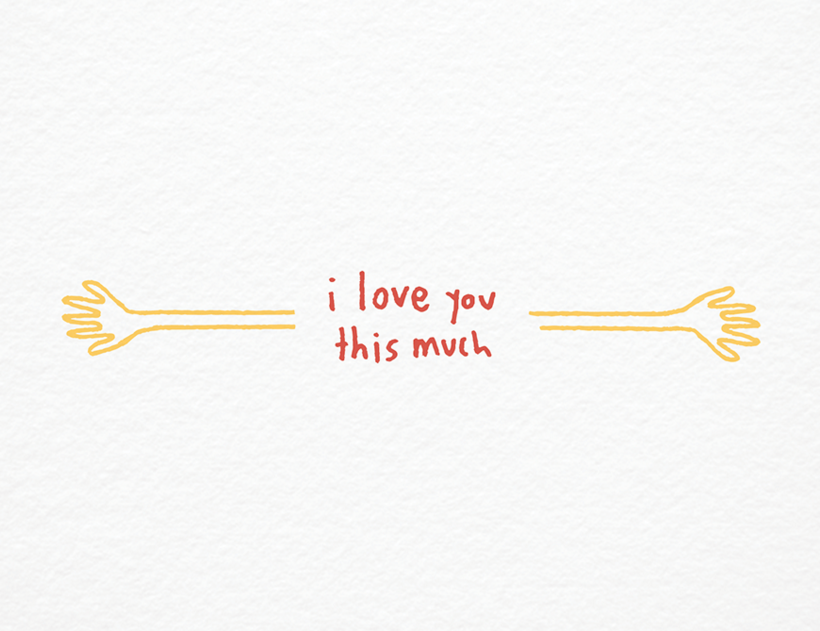 i love you
this much